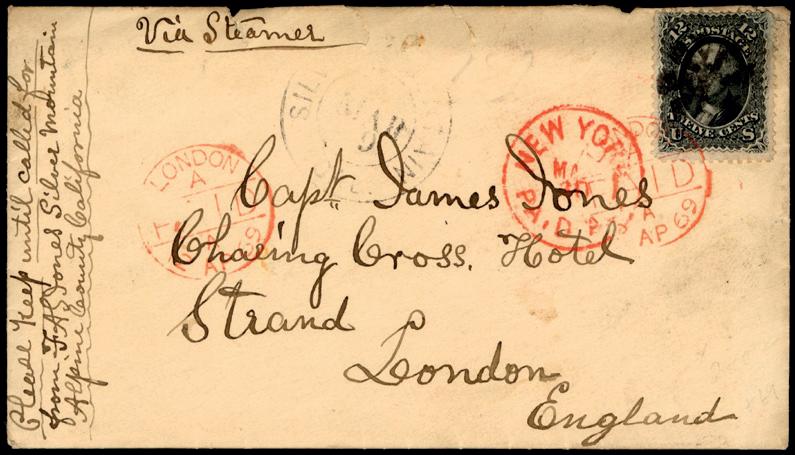 Via Steamer
Capt. James Jones
Chaeing Cross. Hotel
Strand
London
England
Please Keep until called for
from J. A. Jones Silver Mountain
Alpine County California
12
12
U.S. POSTAGE
TWELVE CENTS
U
S
LONDON
A
PAID
AP 69
NEW YORK
PAID
PAID
A
AP 69